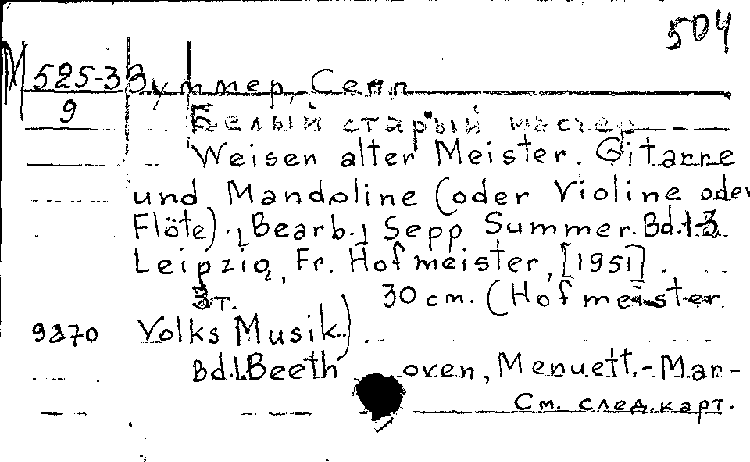 504
М 525-3 Зуммер, Сепп
9
Белый старый мастер
Weisen alter Meister. Gitarre
und Mandoline (oder Violine oder
Flöte). [Bearb.] Sepp Summer. Bd.1-3.
Leipzig, Fr. Hofmeister, [1951].
3т. 30 cm. (Hofmeister
9370 Volks Musik)
Bd.1. Beethoven, Menuett.-Mar-
См. след.карт.